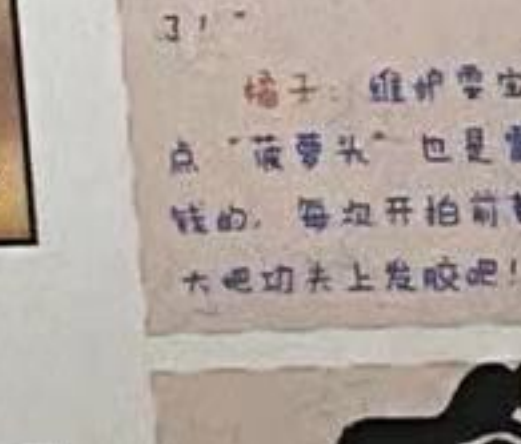 了！"
橘子：维护零宝
点"菠萝头"也是需
钱的，每次开拍前
大吧功夫上发胶吧！